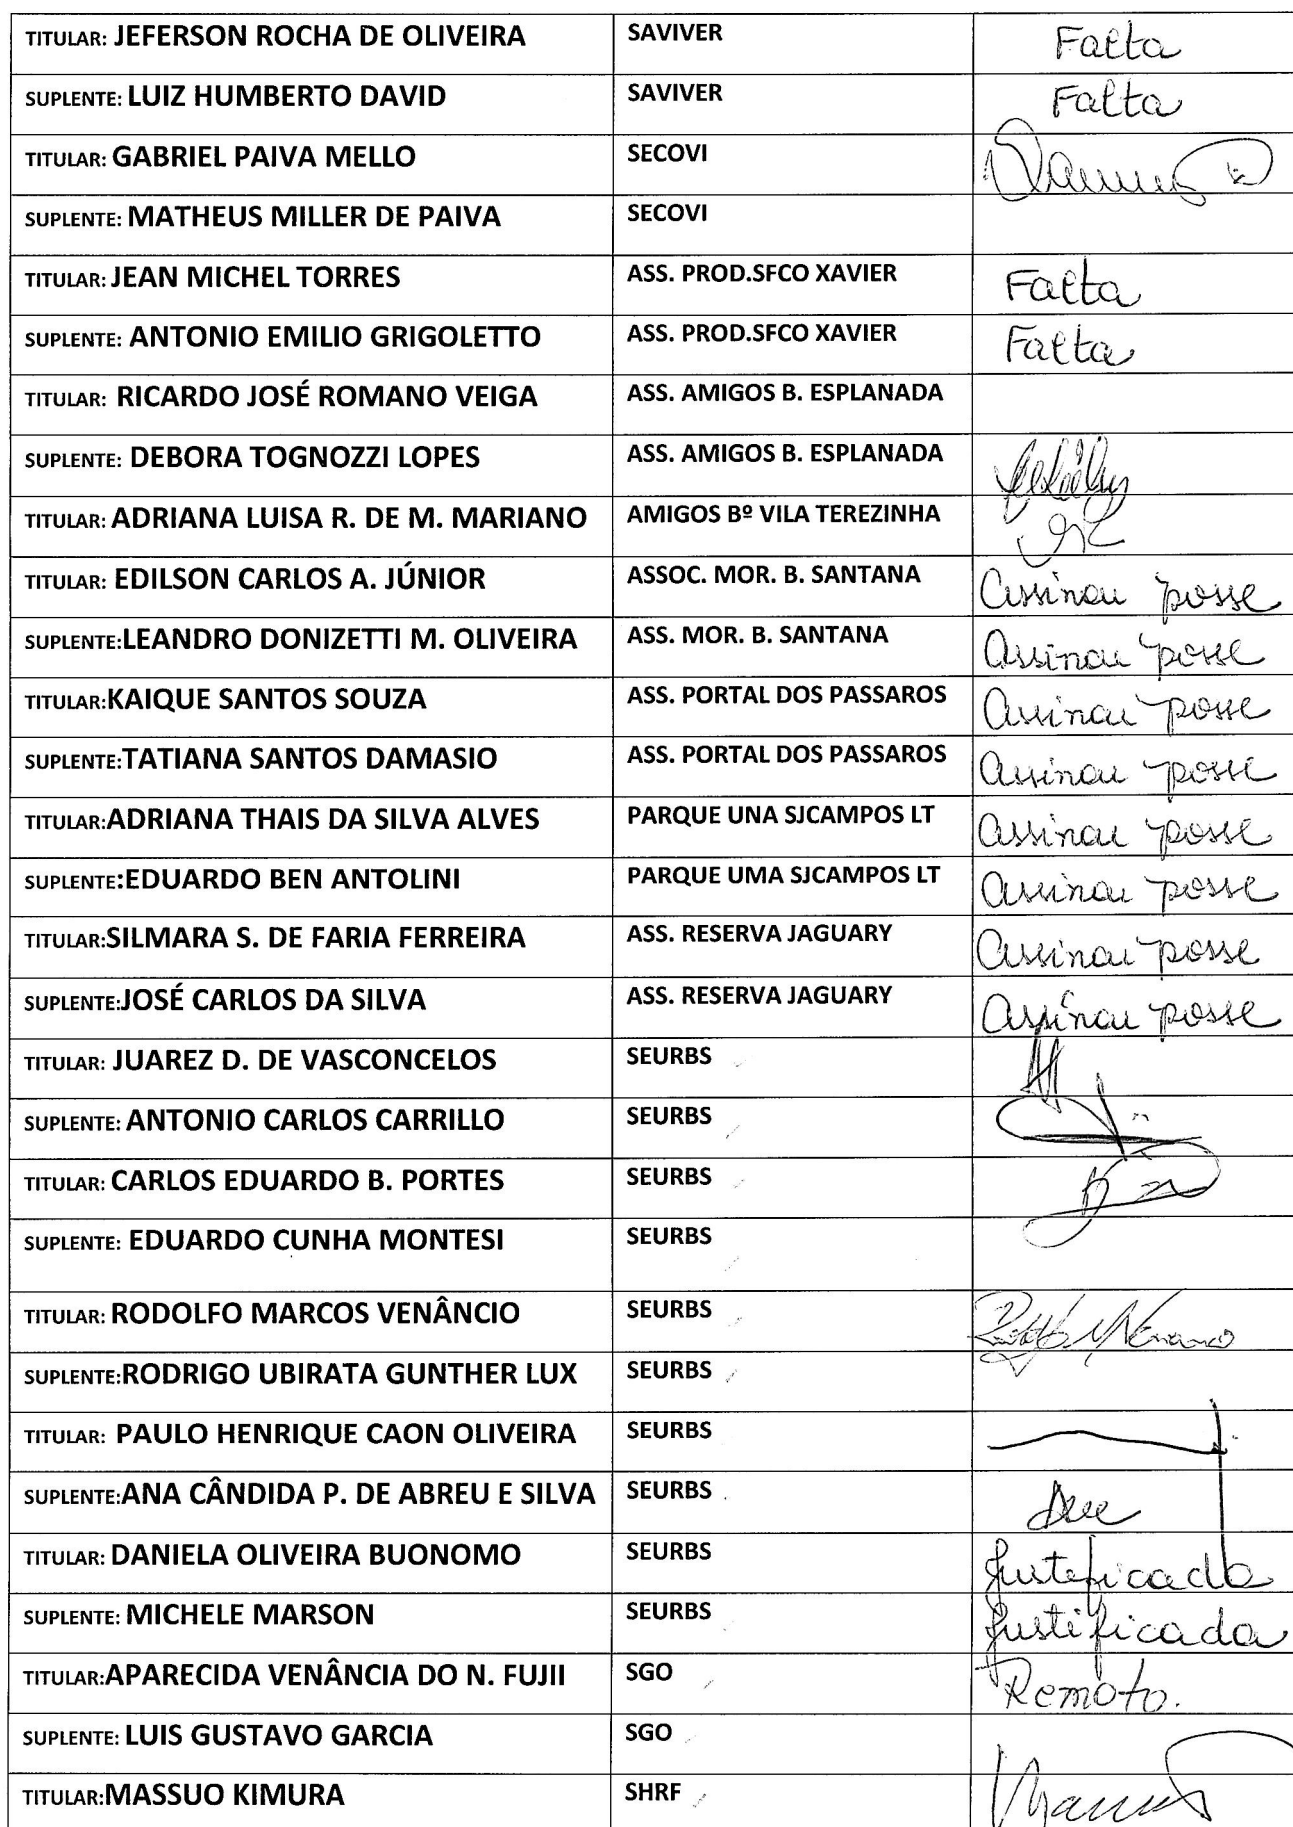 TITULAR: JEFERSON ROCHA DE OLIVEIRA SAVIVER Falta
SUPLENTE: LUIZ HUMBERTO DAVID SAVIVER Falta
TITULAR: GABRIEL PAIVA MELLO SECOVI
SUPLENTE: MATHEUS MILLER DE PAIVA SECOVI
TITULAR: JEAN MICHEL TORRES ASS. PROD.SFCO XAVIER Falta
SUPLENTE: ANTONIO EMILIO GRIGOLETTO ASS. PROD.SFCO XAVIER Falta
TITULAR: RICARDO JOSÉ ROMANO VEIGA ASS. AMIGOS B. ESPLANADA
SUPLENTE: DEBORA TOGNOZZI LOPES ASS. AMIGOS B. ESPLANADA
TITULAR: ADRIANA LUISA R. DE M. MARIANO AMIGOS Bº VILA TEREZINHA
TITULAR: EDILSON CARLOS A. JÚNIOR ASSOC. MOR. B. SANTANA Assinou posse
SUPLENTE:LEANDRO DONIZETTI M. OLIVEIRA ASS. MOR. B. SANTANA Assinou posse
TITULAR:KAIQUE SANTOS SOUZA ASS. PORTAL DOS PASSAROS Assinou posse
SUPLENTE:TATIANA SANTOS DAMASIO ASS. PORTAL DOS PASSAROS Assinou posse
TITULAR:ADRIANA THAIS DA SILVA ALVES PARQUE UNA SJCAMPOS LT Assinou posse
SUPLENTE:EDUARDO BEN ANTOLINI PARQUE UMA SJCAMPOS LT Assinou posse
TITULAR:SILMARA S. DE FARIA FERREIRA ASS. RESERVA JAGUARY Assinou posse
SUPLENTE:JOSÉ CARLOS DA SILVA ASS. RESERVA JAGUARY Assinou posse
TITULAR: JUAREZ D. DE VASCONCELOS SEURBS
SUPLENTE: ANTONIO CARLOS CARRILLO SEURBS
TITULAR: CARLOS EDUARDO B. PORTES SEURBS
SUPLENTE: EDUARDO CUNHA MONTESI SEURBS
TITULAR: RODOLFO MARCOS VENÂNCIO SEURBS
SUPLENTE:RODRIGO UBIRATA GUNTHER LUX SEURBS
TITULAR: PAULO HENRIQUE CAON OLIVEIRA SEURBS
SUPLENTE:ANA CÂNDIDA P. DE ABREU E SILVA SEURBS
TITULAR: DANIELA OLIVEIRA BUONOMO SEURBS Justificada
SUPLENTE: MICHELE MARSON SEURBS Justificada
TITULAR:APARECIDA VENÂNCIA DO N. FUJII SGO Remoto.
SUPLENTE: LUIS GUSTAVO GARCIA SGO
TITULAR:MASSUO KIMURA SHRF